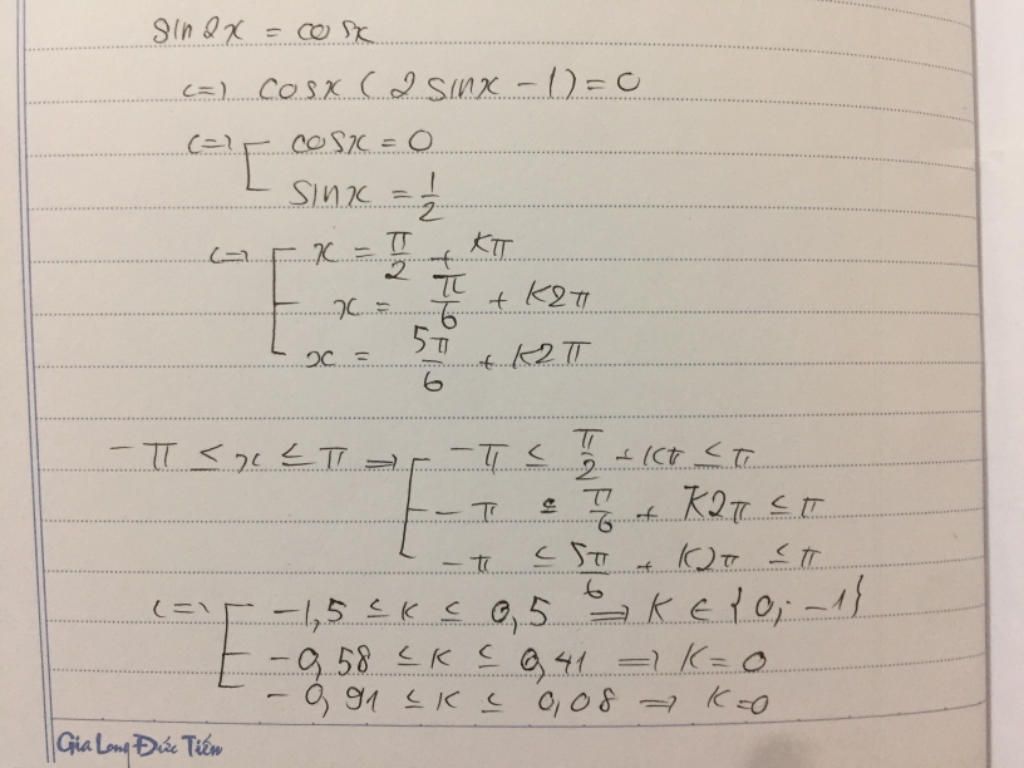 sin2x = cosx
<=> cosx ( 2 sinx - 1) = 0
<=> [ cosx = 0
sinx = 1/2
<=> [ x = π/2 + kπ
x = π/6 + k2π
x = 5π/6 + k2π
-π ≤ x ≤ π => [ -π ≤ π/2 + kπ ≤ π
-π ≤ π/6 + k2π ≤ π
-π ≤ 5π/6 + k2π ≤ π
<=> [ -1,5 ≤ k ≤ 0,5 => k ∈ {0; -1}
-0,58 ≤ k ≤ 0,41 => k = 0
-0,91 ≤ k ≤ 0,08 => k = 0
Gia Long Đức Tiến